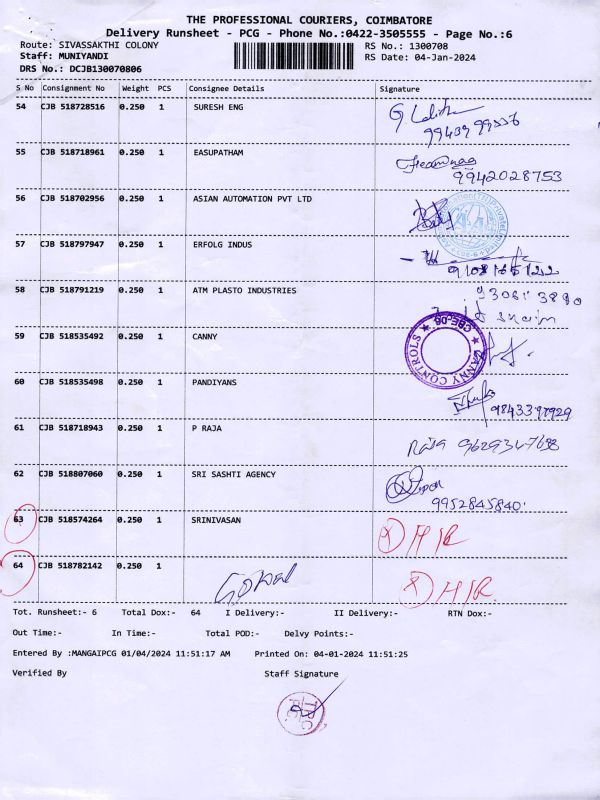 THE PROFESSIONAL COURIERS, COIMBATORE
Delivery Runsheet - PCG - Phone No.:0422-3505555 - Page No.:6
Route: SIVASSAKTHI COLONY RS No.: 1300708
Staff: MUNIYANDI RS Date: 04-Jan-2024
DRS No.: DCJB130070806
S No Consignment No Weight PCS Consignee Details Signature
54 CJB 518728516 0.250 1 SURESH ENG
55 CJB 518718961 0.250 1 EASUPATHAM
9942028753
56 CJB 518702956 0.250 1 ASIAN AUTOMATION PVT LTD
57 CJB 518797947 0.250 1 ERFOLG INDUS
58 CJB 518791219 0.250 1 ATM PLASTO INDUSTRIES
59 CJB 518535492 0.250 1 CANNY
CANNY CONTROLS
60 CJB 518535498 0.250 1 PANDIYANS
61 CJB 518718943 0.250 1 P RAJA
Raja
62 CJB 518807060 0.250 1 SRI SASHTI AGENCY
9952845840
63 CJB 518574264 0.250 1 SRINIVASAN
64 CJB 518782142 0.250 1
Tot. Runsheet:- 6 Total Dox:- 64 I Delivery:- II Delivery:- RTN Dox:-
Out Time:- In Time:- Total POD:- Delvy Points:-
Entered By :MANGAIPCG 01/04/2024 11:51:17 AM Printed On: 04-01-2024 11:51:25
Verified By Staff Signature